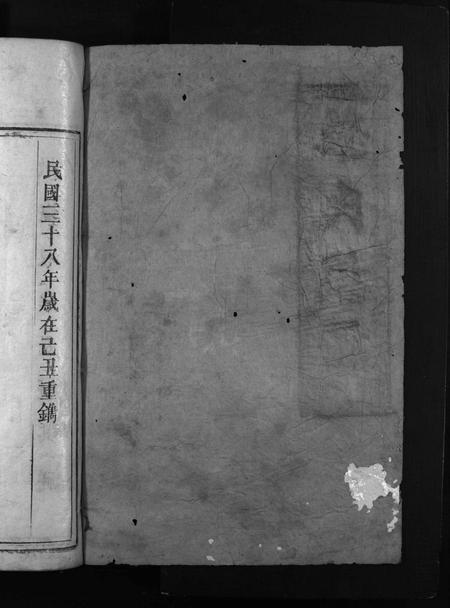 民國三十八年歲在己丑重鐫